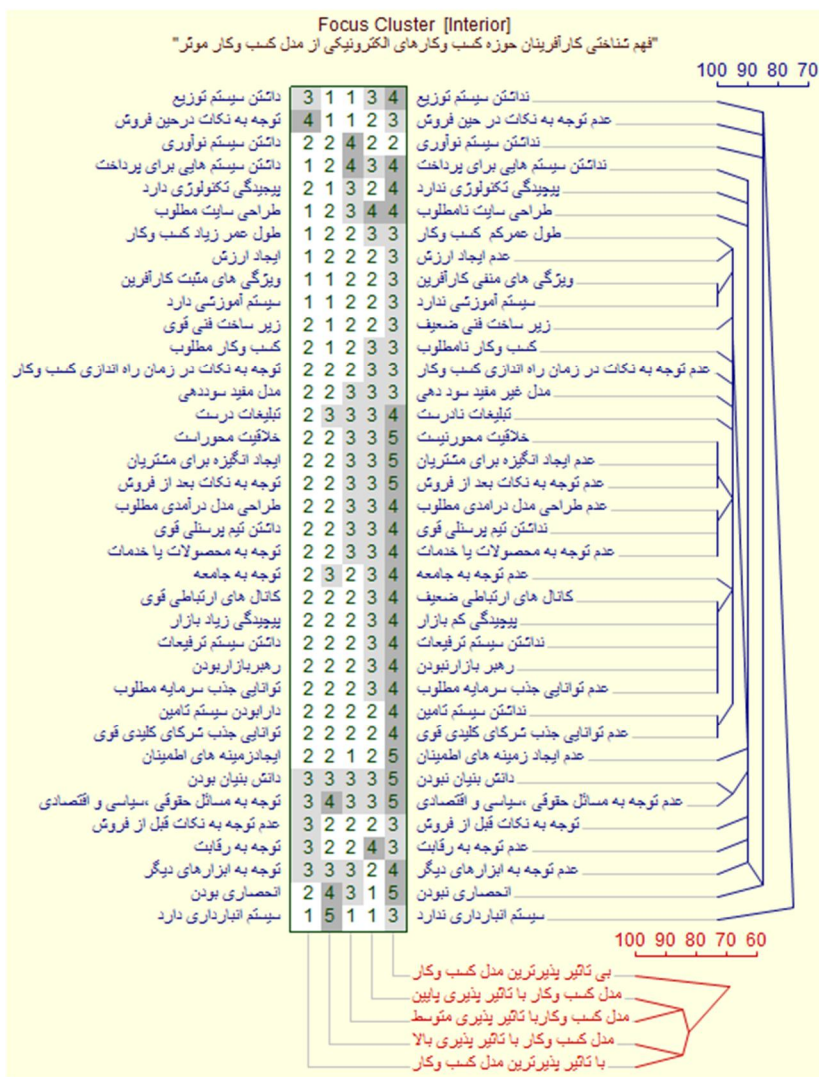 Focus Cluster [Interior]
"فهم شناختی کارآفرینان حوزه کسب وکارهای الکترونیکی از مدل کسب وکار موثر"
100 90 80 70
داشتن سیستم توزیع 3 1 1 3 4 نداشتن سیستم توزیع
توجه به نکات درحین فروش 4 1 1 2 3 عدم توجه به نکات در حین فروش
داشتن سیستم نوآوری 2 2 4 2 2 نداشتن سیستم نوآوری
داشتن سیستم هایی برای پرداخت 1 2 4 3 4 نداشتن سیستم هایی برای پرداخت
پیچیدگی تکنولوژی دارد 2 1 3 2 4 پیچیدگی تکنولوژی ندارد
طراحی سایت مطلوب 1 2 3 4 4 طراحی سایت نامطلوب
طول عمر زیاد کسب وکار 1 2 2 3 3 طول عمرکم کسب وکار
ایجاد ارزش 1 2 2 2 3 عدم ایجاد ارزش
ویژگی های مثبت کارآفرین 1 1 2 2 3 ویژگی های منفی کارآفرین
سیستم آموزشی دارد 1 1 2 2 3 سیستم آموزشی ندارد
زیر ساخت فنی قوی 2 1 2 2 3 زیر ساخت فنی ضعیف
کسب وکار مطلوب 2 1 2 3 3 کسب وکار نامطلوب
توجه به نکات در زمان راه اندازی کسب وکار 2 2 2 3 3 عدم توجه به نکات در زمان راه اندازی کسب وکار
مدل مفید سوددهی 2 2 3 3 3 مدل غیر مفید سود دهی
تبلیغات درست 2 3 3 3 4 تبلیغات نادرست
خلاقیت محوراست 2 2 3 3 5 خلاقیت محورنیست
ایجاد انگیزه برای مشتریان 2 2 3 3 5 عدم ایجاد انگیزه برای مشتریان
توجه به نکات بعد از فروش 2 2 3 3 5 عدم توجه به نکات بعد از فروش
طراحی مدل درآمدی مطلوب 2 2 3 3 4 عدم طراحی مدل درامدی مطلوب
داشتن تیم پرسنلی قوی 2 2 3 3 4 نداشتن تیم پرسنلی قوی
توجه به محصولات یا خدمات 2 2 3 3 4 عدم توجه به محصولات یا خدمات
توجه به جامعه 2 3 2 3 4 عدم توجه به جامعه
کانال های ارتباطی قوی 2 2 2 3 4 کانال های ارتباطی ضعیف
پیچیدگی زیاد بازار 2 2 2 3 4 پیچیدگی کم بازار
داشتن سیستم ترفیعات 2 2 2 3 4 نداشتن سیستم ترفیعات
رهبربازاربودن 2 2 2 3 4 رهبر بازارنبودن
توانایی جذب سرمایه مطلوب 2 2 2 3 4 عدم توانایی جذب سرمایه مطلوب
دارابودن سیستم تامین 2 2 2 2 4 نداشتن سیستم تامین
توانایی جذب شرکای کلیدی قوی 2 2 2 2 4 عدم توانایی جذب شرکای کلیدی قوی
ایجادزمینه های اطمینان 2 2 1 2 5 عدم ایجاد زمینه های اطمینان
دانش بنیان بودن 3 3 3 3 5 دانش بنیان نبودن
توجه به مسائل حقوقی ،سیاسی و اقتصادی 3 4 3 3 5 عدم توجه به مسائل حقوقی ،سیاسی و اقتصادی
عدم توجه به نکات قبل از فروش 3 2 2 2 3 توجه به نکات قبل از فروش
توجه به رقابت 3 2 2 4 3 عدم توجه به رقابت
توجه به ابزارهای دیگر 3 3 3 2 4 عدم توجه به ابزارهای دیگر
انحصاری بودن 2 4 3 1 5 انحصاری نبودن
سیستم انبارداری دارد 1 5 1 1 3 سیستم انبارداری ندارد
100 90 80 70 60
بی تاثیر پذیرترین مدل کسب وکار
مدل کسب وکار با تاثیر پذیری پایین
مدل کسب وکاربا تاثیر پذیری متوسط
مدل کسب وکار با تاثیر پذیری بالا
با تاثیر پذیرترین مدل کسب وکار